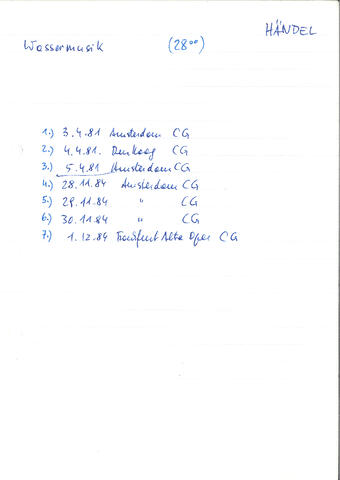 HÄNDEL
Wassermusik (28⁰⁰)
1.) 3.4.81 Amsterdam CG
2.) 4.4.81. Den Haag CG
3.) 5.4.81 Amsterdam CG
4.) 28.11.84 Amsterdam CG
5.) 29.11.84 " CG
6.) 30.11.84 " CG
7.) 1.12.84 Frankfurt Alte Oper CG